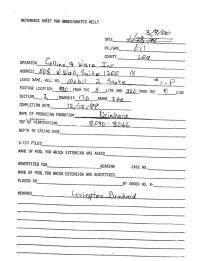 REFERENCE SHEET FOR UNDESIGNATED WELLS
3/9/00
DATE
OIL/GAS Oil
COUNTY Lea
OPERATOR Collins & Ware Inc
ADDRESS 508 W Wall, Suite 1200 M
LEASE NAME, WELL NO. Mobil 2 State #1-P
FOOTAGE LOCATION FROM THE S LINE AND FROM THE E LINE
SECTION 2 TOWNSHIP 17S RANGE 36E
COMPLETION DATE 12/15/99
NAME OF PRODUCING FORMATION Drinkard
TOP OF PERFORATIONS 8040-
DEPTH TO CASING SHOE
C-123 FILED
NAME OF POOL FOR WHICH EXTENSION WAS ASKED
ADVERTISED FOR HEARING CASE NO.
NAME OF POOL FOR WHICH EXTENSION WAS ADVERTISED
PLACED IN BY ORDER NO. R-
REMARKS Lovington Drinkard